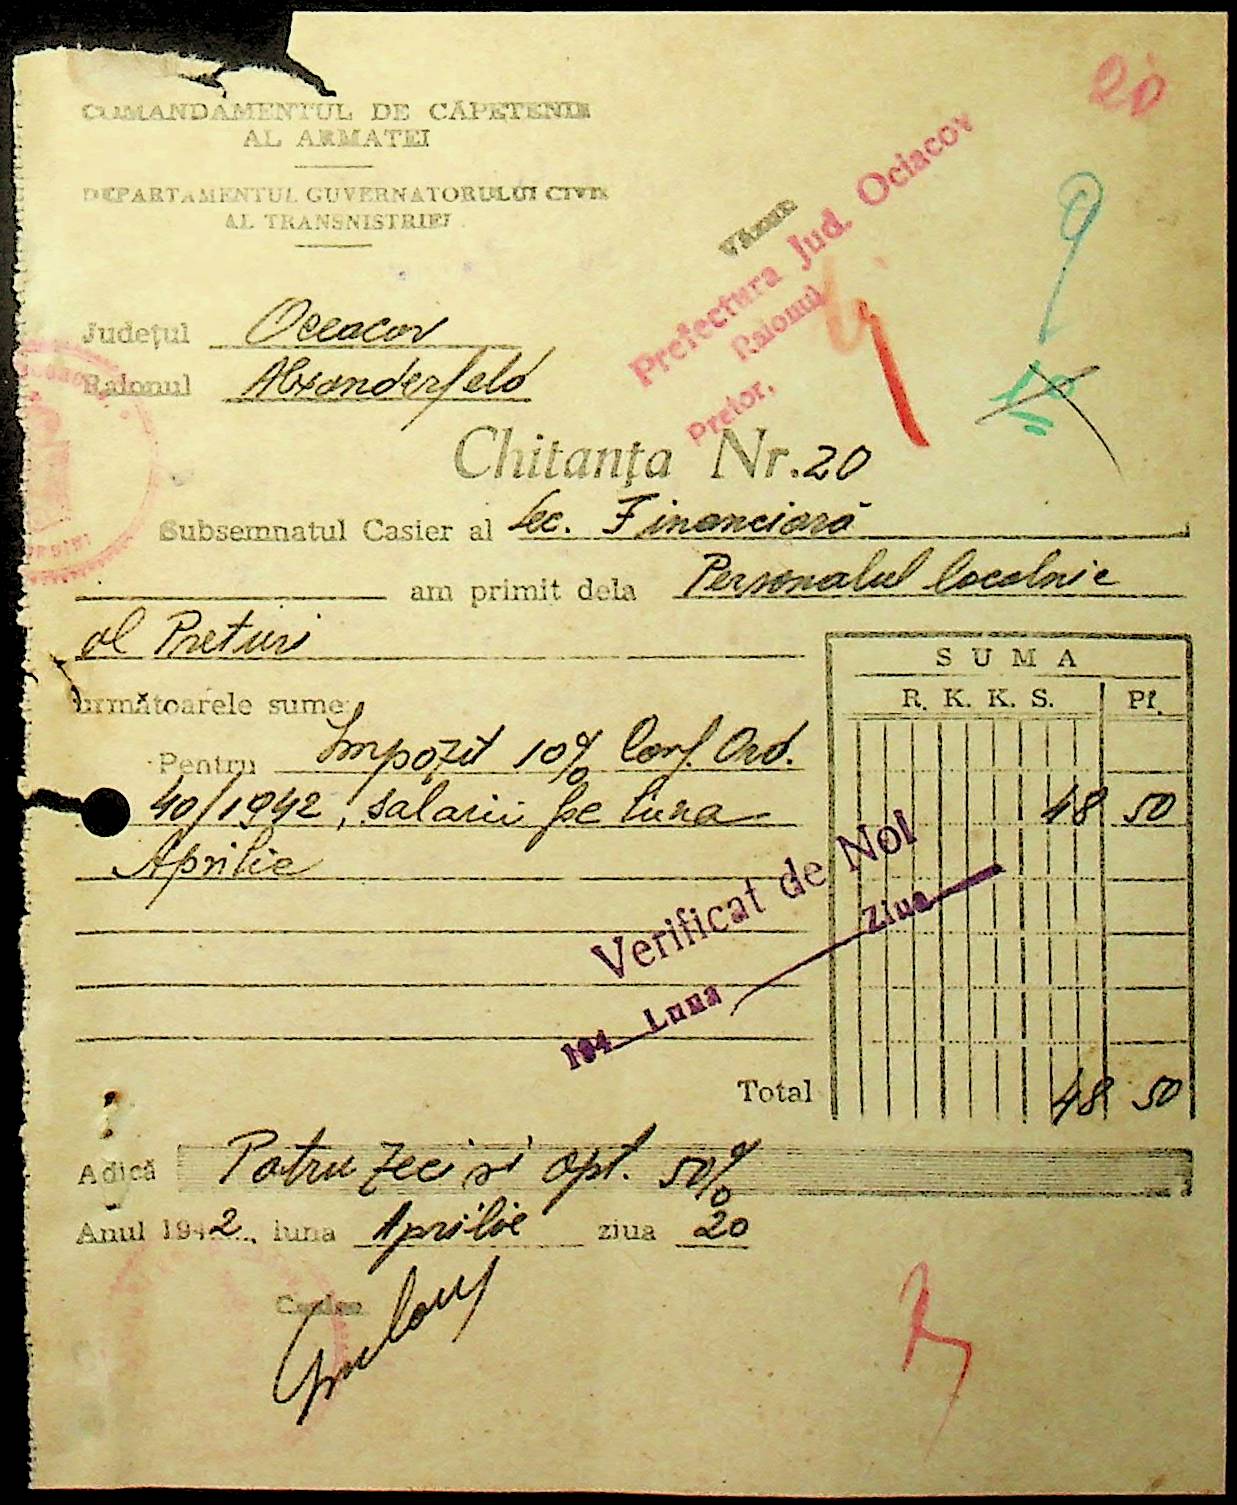 20
COMANDAMENTUL DE CĂPETENIE
AL ARMATEI
DEPARTAMENTUL GUVERNATORULUI CIVIL
AL TRANSNISTRIEI
Văzut
Prefectura Jud. Ociacov
Raionul
Pretor,
9
10
Județul Oceacov
Raionul Alexanderfeld
Chitanța Nr. 20
Subsemnatul Casier al Sec. Financiară
am primit dela Personalul localnic
al Preturi
următoarele sume
SUMA
R. K. K. S. Pf.
Pentru Impozit 10% Conf. Ord.
40/1942, salarii pe luna 48 50
Aprilie
Verificat de Noi
194 Luna Ziua
Total 48 50
Adică Patru zeci și opt. 50%
Anul 1942, luna Aprilie ziua 20
Casier